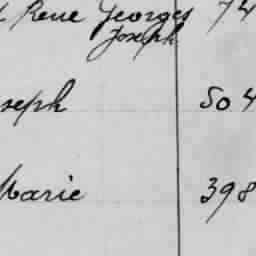 Rene Georges 74
Joseph
seph 504
Marie 398